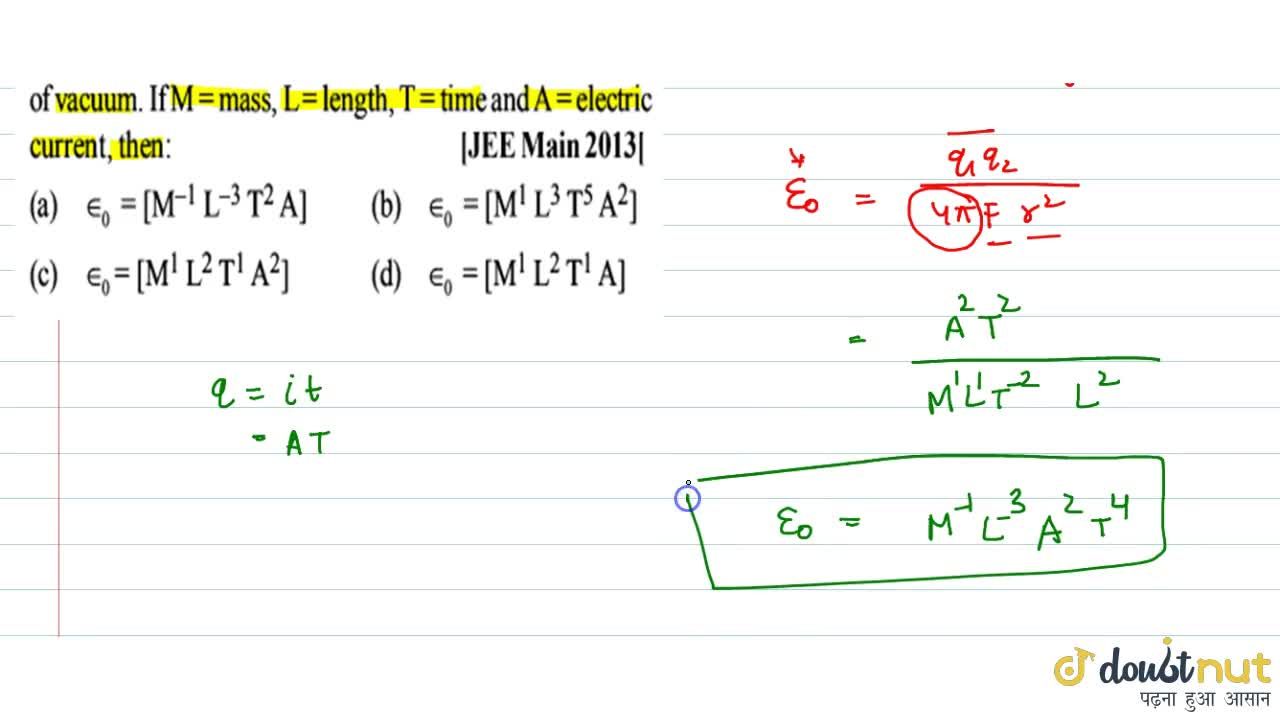 of vacuum. If M = mass, L = length, T = time and A = electric
current, then: |JEE Main 2013|
(a) ϵ₀ = [M⁻¹ L⁻³ T² A] (b) ϵ₀ = [M¹ L³ T⁵ A²]
(c) ϵ₀ = [M¹ L² T¹ A²] (d) ϵ₀ = [M¹ L² T¹ A]
q = it
= AT
ε₀ = q₁ q₂
4π F r²
= A² T²
M¹ L¹ T⁻² L²
ε₀ = M⁻¹ L⁻³ A² T⁴
doubtnut
पढ़ना हुआ आसान